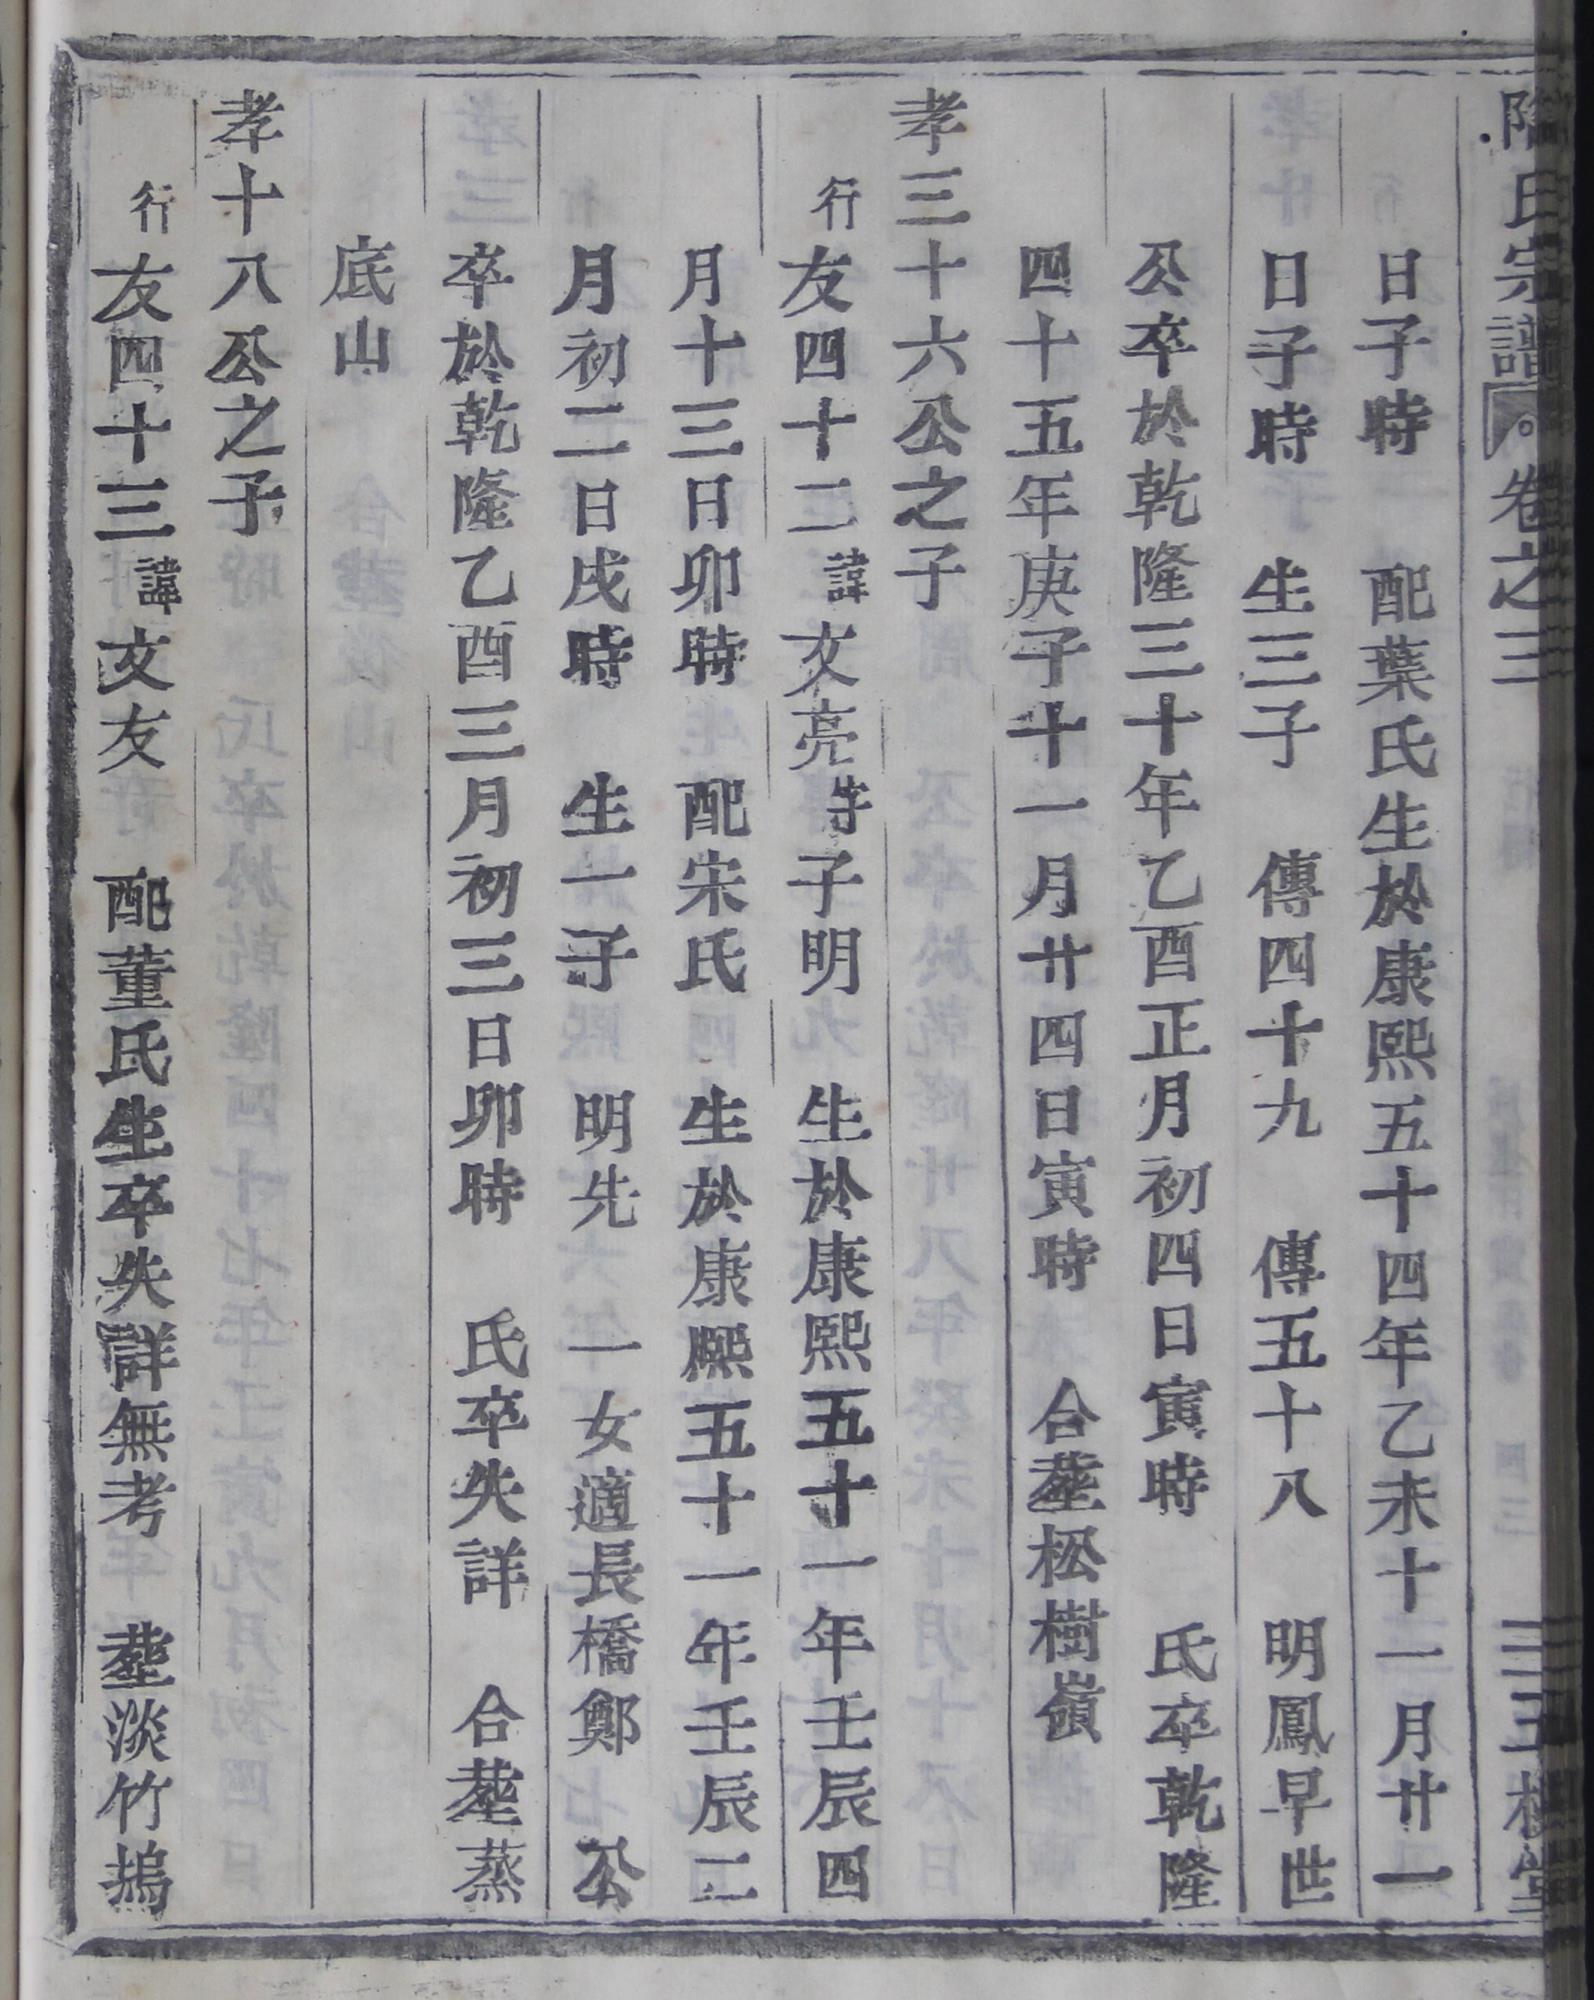 隂氏宗譜 卷之三
日子時 配葉氏生於康熙五十四年乙未十一月廿一
日子時 生三子 傳四十九 傳五十八 明鳳早世
公卒於乾隆三十年乙酉正月初四日寅時 氏卒乾隆
四十五年庚子十一月廿四日寅時 合塟松樹嶺
孝三十六公之子
行友四十二諱文亮字子明 生於康熙五十一年壬辰四
月十三日卯時 配宋氏 生於康熙五十一年壬辰二
月初二日戌時 生一子 明先 一女適長橋鄭 公
卒於乾隆乙酉三月初三日卯時 氏卒失詳 合塟蒸
底山
孝十八公之子
行友四十三諱文友 配董氏生卒失詳無考 塟淡竹塢